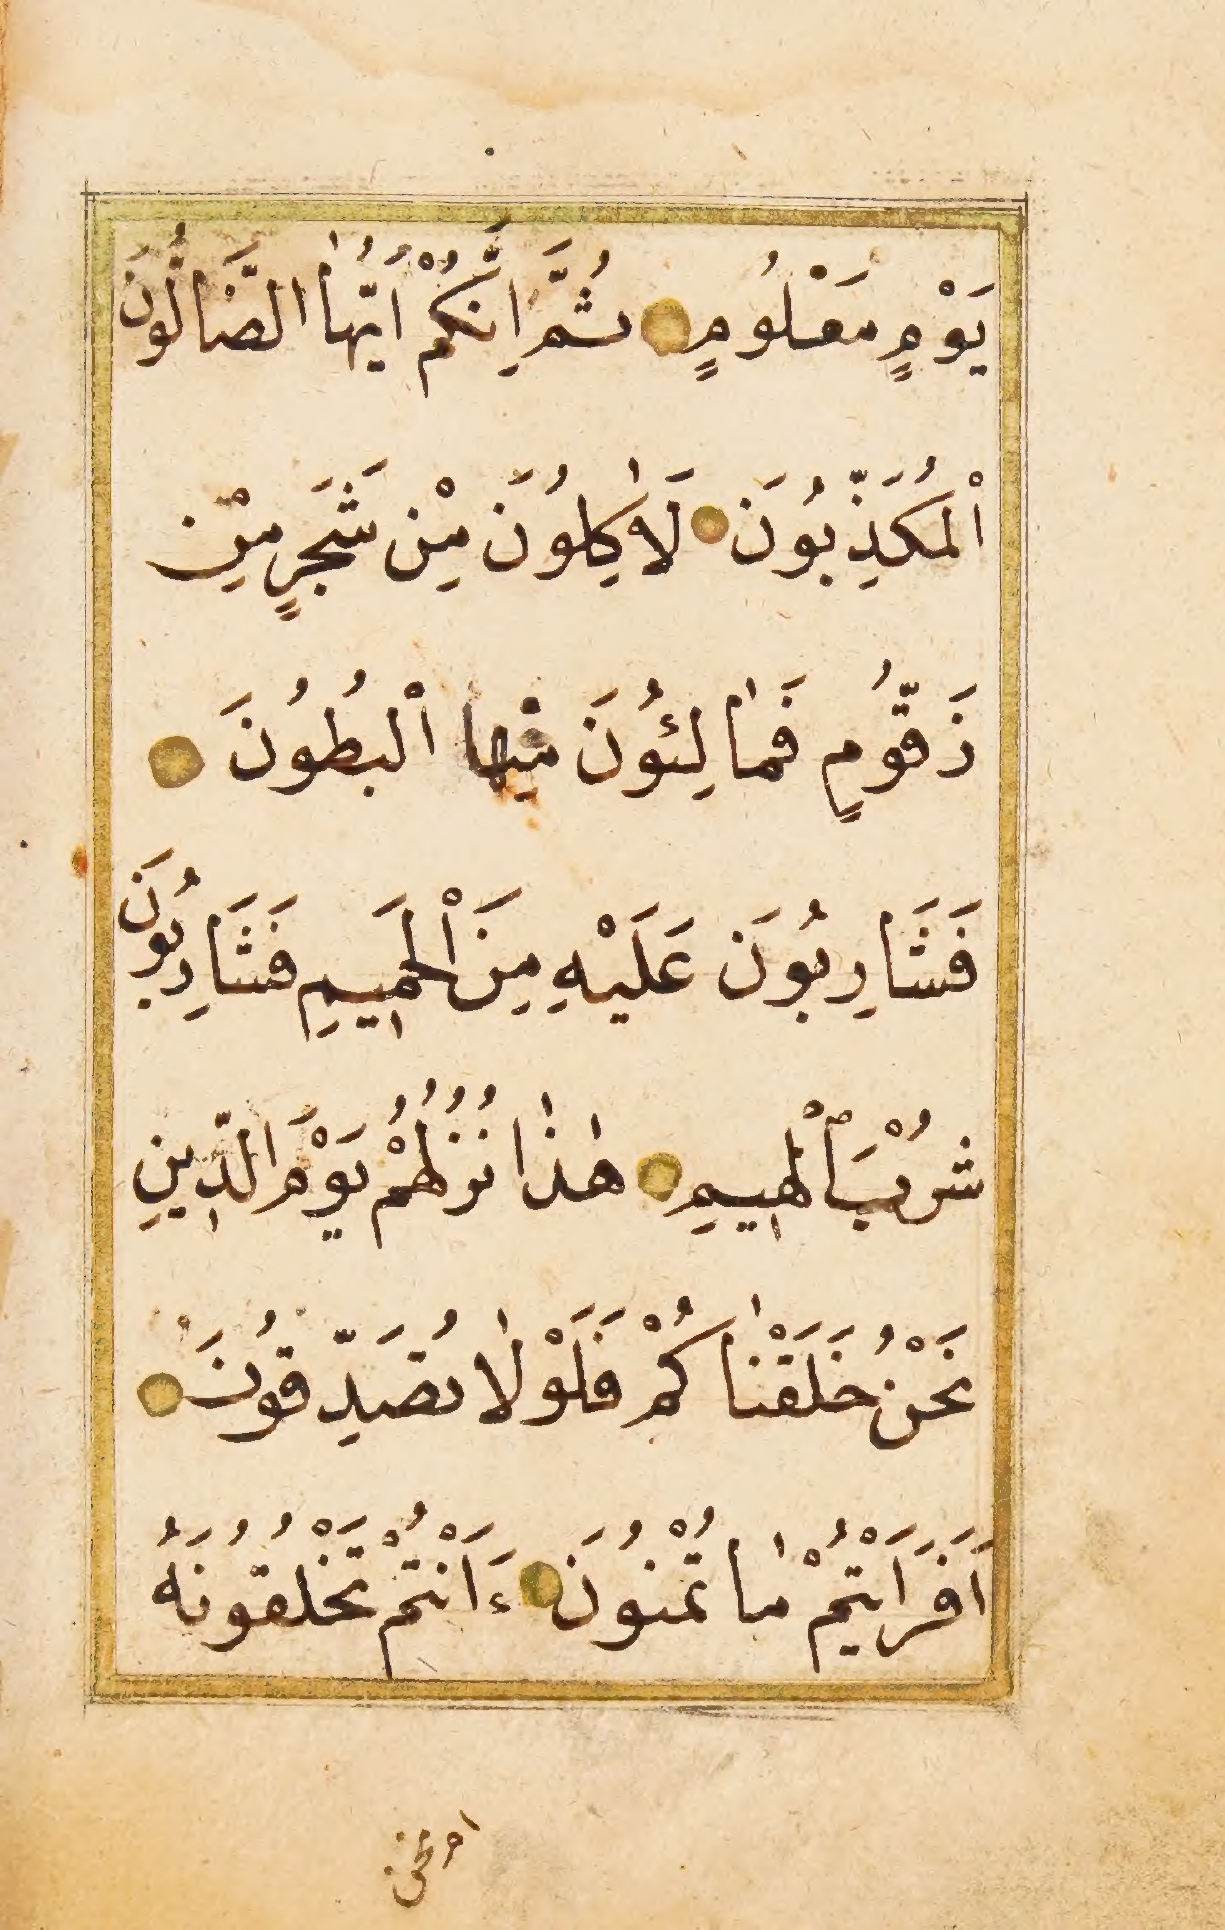 يَوْمٍ مَعْلُومٍ ثُمَّ اِنَّكُمْ اَيُّهَا الضَّالُّونَ
الْمُكَذِّبُونَ لَاٰكِلُونَ مِنْ شَجَرٍ مِنْ
زَقُّومٍ فَمَالِئُونَ مِنْهَا الْبُطُونَ
فَشَارِبُونَ عَلَيْهِ مِنَ الْحَمِيمِ فَشَارِبُونَ
شُرْبَ الْهِيمِ هٰذَا نُزُلُهُمْ يَوْمَ الدِّينِ
نَحْنُ خَلَقْنَاكُمْ فَلَوْلَا تُصَدِّقُونَ
اَفَرَاَيْتُمْ مَا تُمْنُونَ ءَاَنْتُمْ تَخْلُقُونَهُ
ام نحن